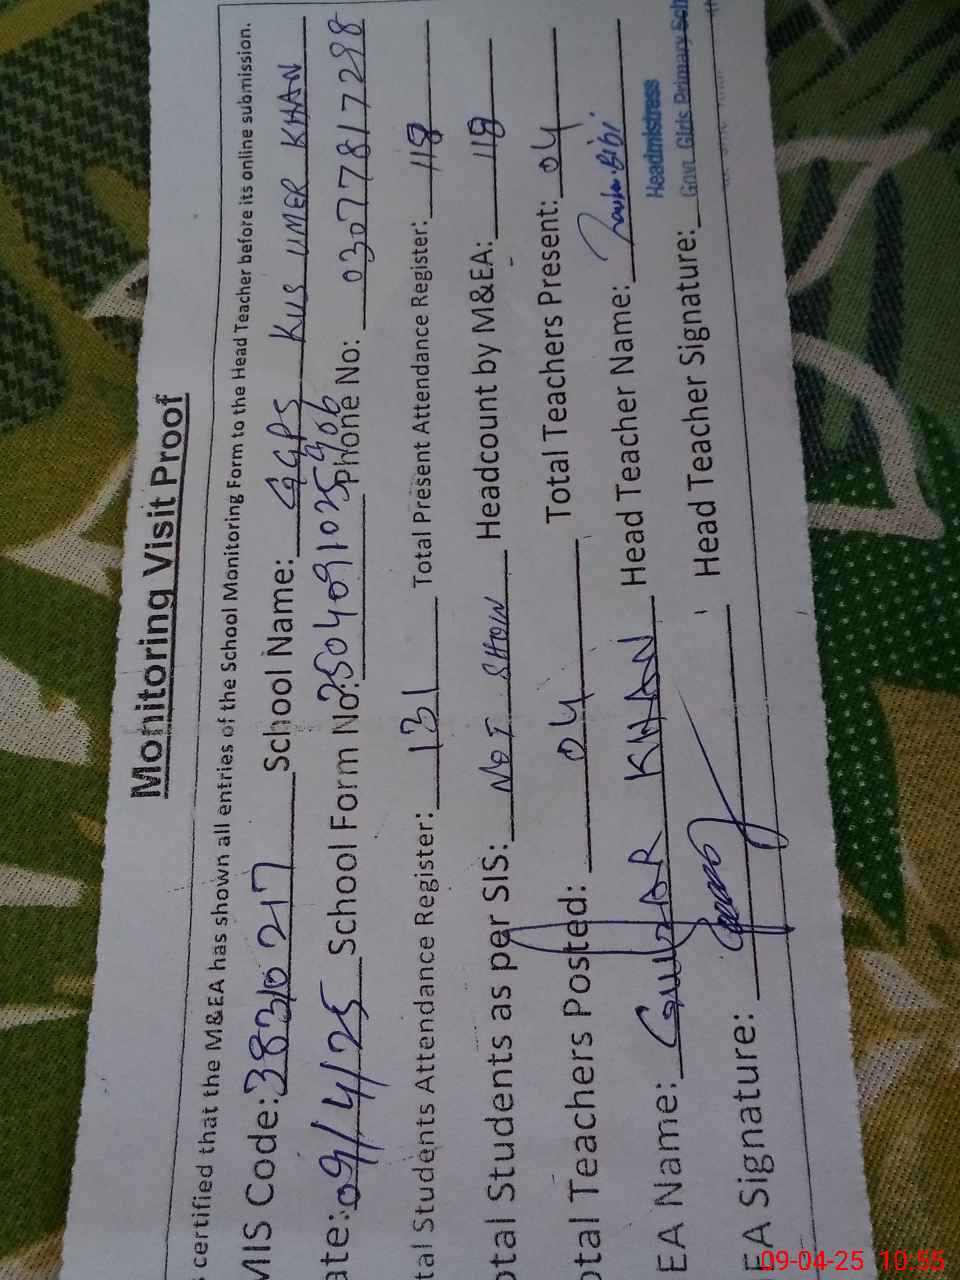 Monitoring Visit Proof
certified that the M&EA has shown all entries of the School Monitoring Form to the Head Teacher before its online submission.
MIS Code: 38310217 School Name: GGPS KUS UMER KHAN
ate: 09/4/25 School Form No: 2504091025906 Phone No: 03077817298
tal Students Attendance Register: 131 Total Present Attendance Register: 118
otal Students as per SIS: NOT SHOW Headcount by M&EA: 118
otal Teachers Posted: 04 Total Teachers Present: 04
EA Name: GULZAR KHAN Head Teacher Name: Bibi
Headmistress
EA Signature: Head Teacher Signature: Govt. Girls Primary Sch
09-04-25 10:55